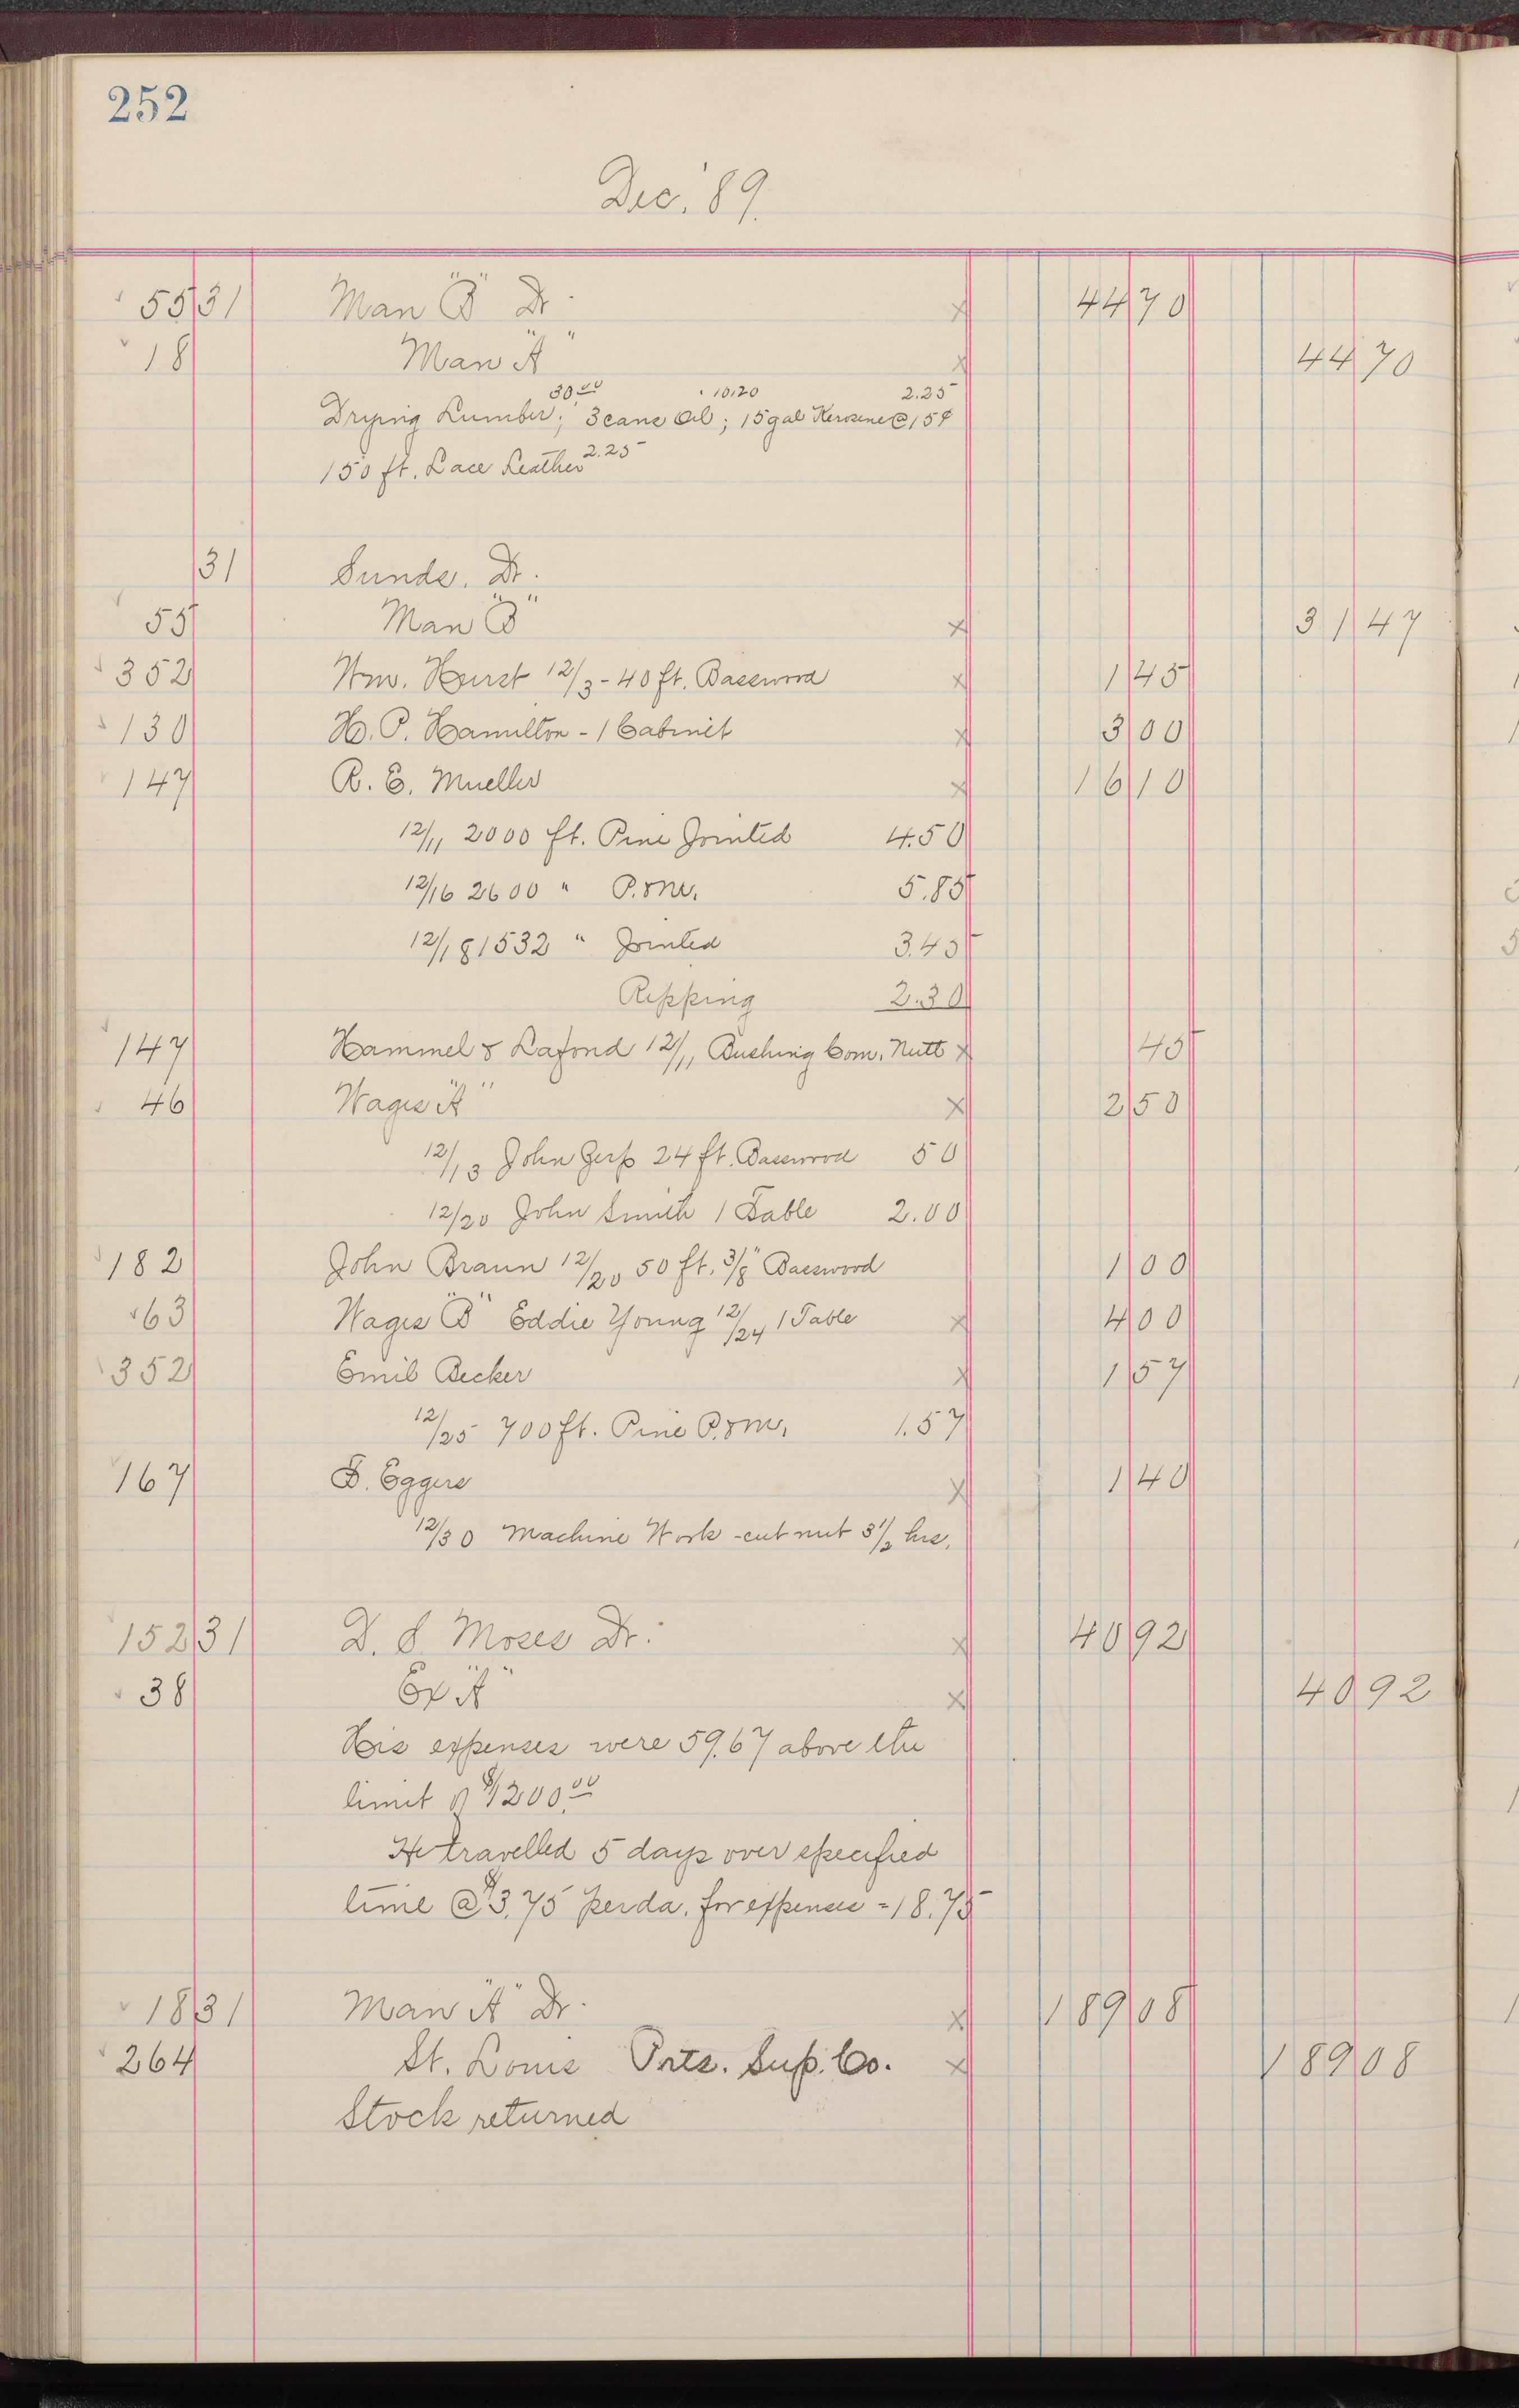 252
Dec. '89.
55 31 Man "B" Dr. 44 70
18 Man "A" 44 70
30.00 10.20 2.25
Drying Lumber; 3 cans Oil; 15 gal Kerosene @ 15¢
150 ft. Lace Leather 2.25
31 Sunds. Dr.
55 Man "B" 31 47
352 Wm. Hurst 12/3 - 40 ft. Basswood 1 45
130 H. P. Hamilton - 1 Cabinet 3 00
147 R. E. Mueller 16 10
12/11 2000 ft. Pine Jointed 4.50
12/16 2600 " P. & M. 5.85
12/18 1532 " Jointed 3.45
Ripping 2.30
147 Hammel & Lafond 12/11 Bushing Com. Nutt 45
46 Wages "A" 2 50
12/13 John Gerp 24 ft. Basswood 50
12/20 John Smith 1 Table 2.00
182 John Braun 12/20 50 ft. 3/8" Basswood 1 00
63 Wages "B" Eddie Young 12/24 1 Table 4 00
352 Emil Becker 1 57
12/25 700 ft. Pine P. & M. 1.57
167 F. Eggers 1 40
12/30 Machine Work - cut nut 3 1/2 hrs.
152 31 D. S. Moses Dr. 40 92
38 Ex "A" 40 92
His expenses were 59.67 above the
limit of $1200.00
He travelled 5 days over specified
time @ $3.75 per da. for expenses = 18.75
18 31 Man "A" Dr. 189 08
264 St. Louis Prts. Sup. Co. 189 08
Stock returned